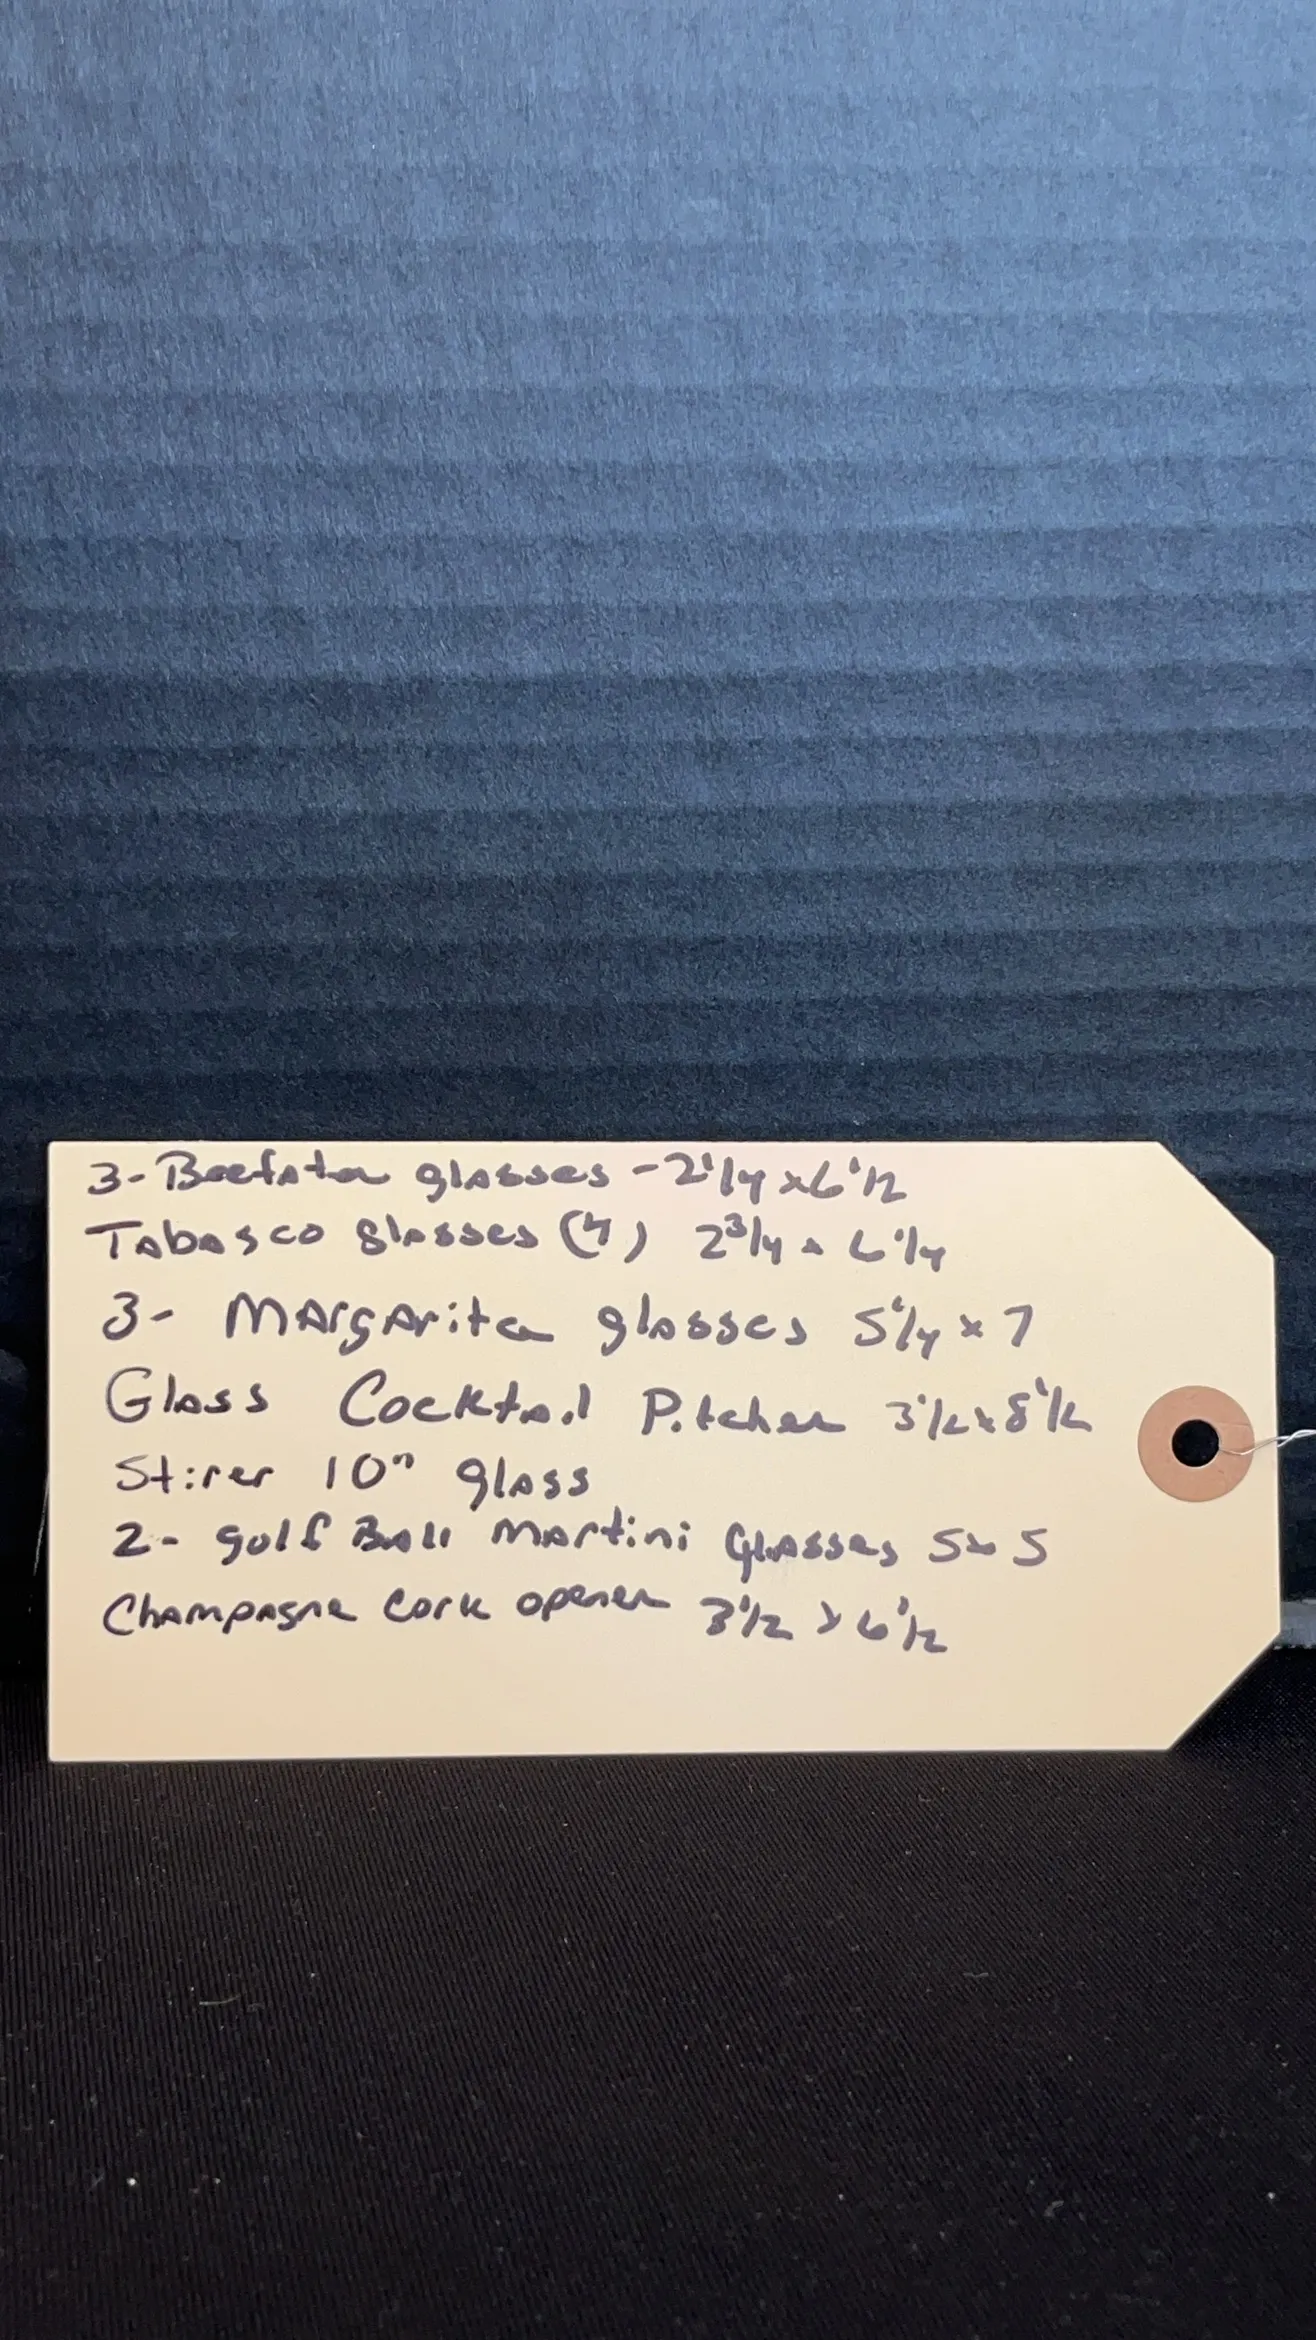 3- Beefata glasses - 2 1/4 x 6 1/2
Tabasco glasses (4) 2 3/4 x 6 1/4
3- Margarita glasses 5 1/4 x 7
Glass Cocktail Pitcher 3 1/2 x 8 1/2
Stirer 10" glass
2- golf Ball Martini Glasses 5x5
Champagne Cork opener 3 1/2 x 6 1/2